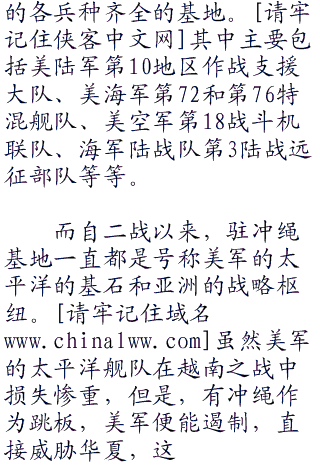 的各兵种齐全的基地。[请牢
记住侠客中文网]其中主要包
括美陆军第10地区作战支援
大队、美海军第72和第76特
混舰队、美空军第18战斗机
联队、海军陆战队第3陆战远
征部队等等。
而自二战以来，驻冲绳
基地一直都是号称美军的太
平洋的基石和亚洲的战略枢
纽。[请牢记住域名
www.china1ww.com]虽然美军
的太平洋舰队在越南之战中
损失惨重，但是，有冲绳作
为跳板，美军便能遏制，直
接威胁华夏，这